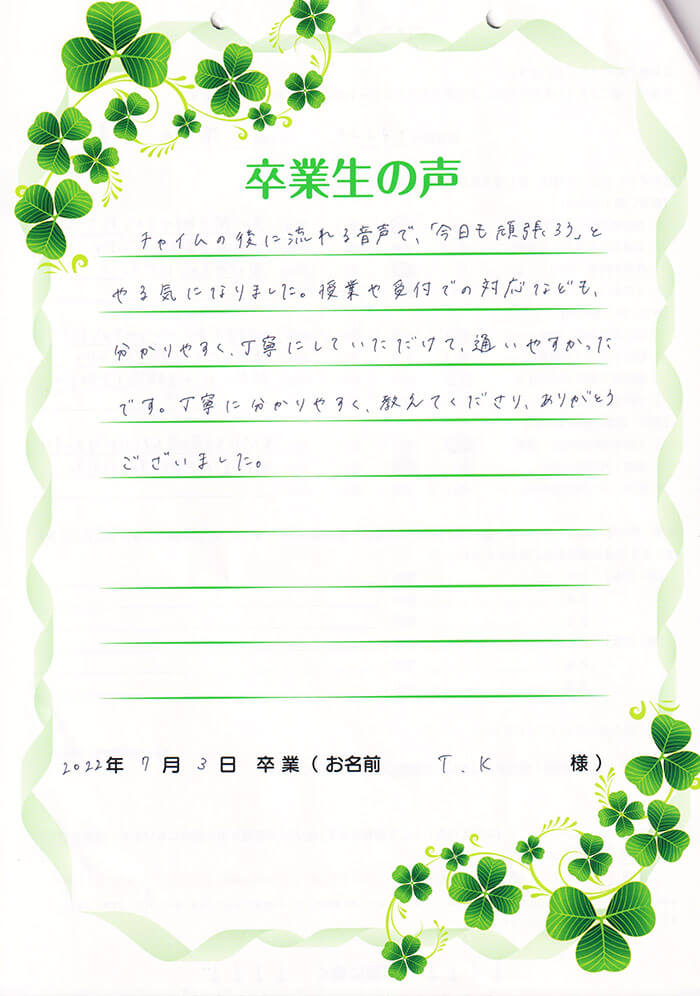 卒業生の声
チャイムの後に流れる音声で、「今日も頑張ろう」と
やる気になりました。授業や受付での対応なども、
分かりやすく、丁寧にしていただけて、通いやすかった
です。丁寧に分かりやすく、教えてくださり、ありがとう
ございました。
2022年 7月 3日 卒業(お名前 T.K 様)